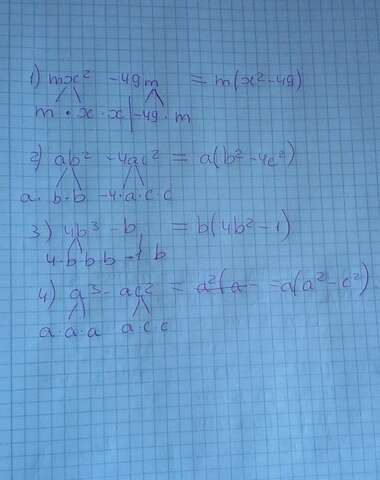 1) mx² - 49m = m(x²-49)
m · x · x | -49 · m
2) ab² - 4ac² = a(b²-4c²)
a · b · b -4·a·c·c
3) 4b³ - b = b(4b²-1)
4·b·b·b -1 b
4) a³ - ac² = a²(a = a(a²-c²)
a·a·a a·c·c